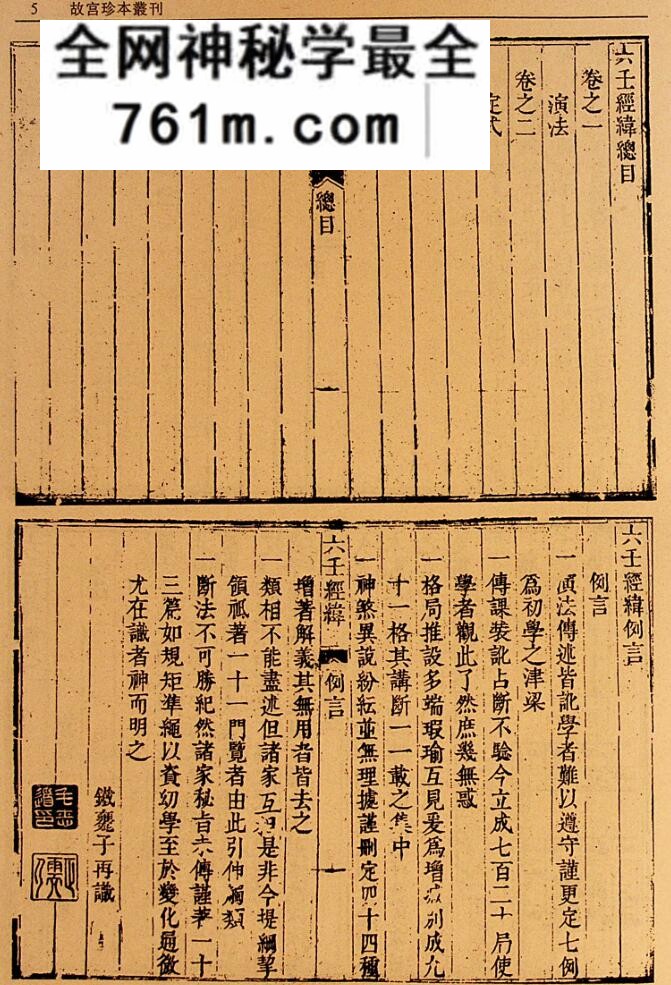 5 故宮珍本叢刊
全网神秘学最全
761m.com
六壬經緯總目
卷之一
演法
卷之二
定式
總目
一
六壬經緯例言
例言
一演法傳述皆訛學者難以遵守謹更定七例
爲初學之津梁
一傳課裝訛占斷不驗今立成七百二十局使
學者觀此了然庶幾無惑
一格局推設多端瑕瑜互見爰爲增 別成九
十一格其講斷一一載之集中
一神煞異說紛紜並無理據謹刪定四十四種
六壬經緯 例言 一
增著解義其無用者皆去之
一類相不能盡述但諸家互 是非今提綱挈
領祇著一十一門覽者由此引伸觸類
一斷法不可勝紀然諸家秘旨未傳謹著一十
三篇如規矩準繩以資幼學至於變化通微
尤在識者神而明之
鐵甕子再識